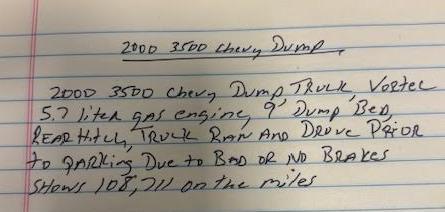 2000 3500 Chevy Dump
2000 3500 Chevy, Dump Truck, Vortec
5.7 liter gas engine, 9' Dump Bed,
Rear Hitch, Truck Ran And Drove Prior
to Parking Due to Bad or No Brakes
Shows 108,711 on the miles